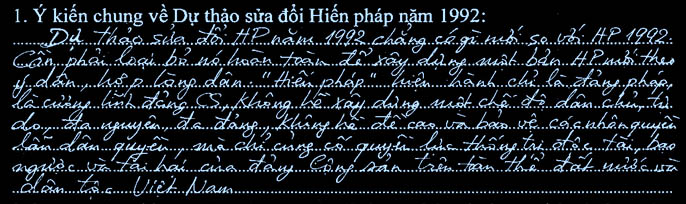 1. Ý kiến chung về Dự thảo sửa đổi Hiến pháp năm 1992:
Dự thảo sửa đổi HP năm 1992 chẳng có gì mới so với HP 1992.
Cần phải loại bỏ nó hoàn toàn để xây dựng một bản HP mới theo
ý dân, hợp lòng dân. "Hiến pháp" hiện hành chỉ là đảng pháp,
là cương lĩnh đảng CS, không hề xây dựng một chế độ dân chủ, tự
do, đa nguyên, đa đảng, không hề đề cao và bảo vệ các nhân quyền
lẫn dân quyền, mà chỉ củng cố quyền lực thống trị độc tài, bạo
ngược và tai hại của đảng Cộng sản trên toàn thể đất nước và
dân tộc Việt Nam